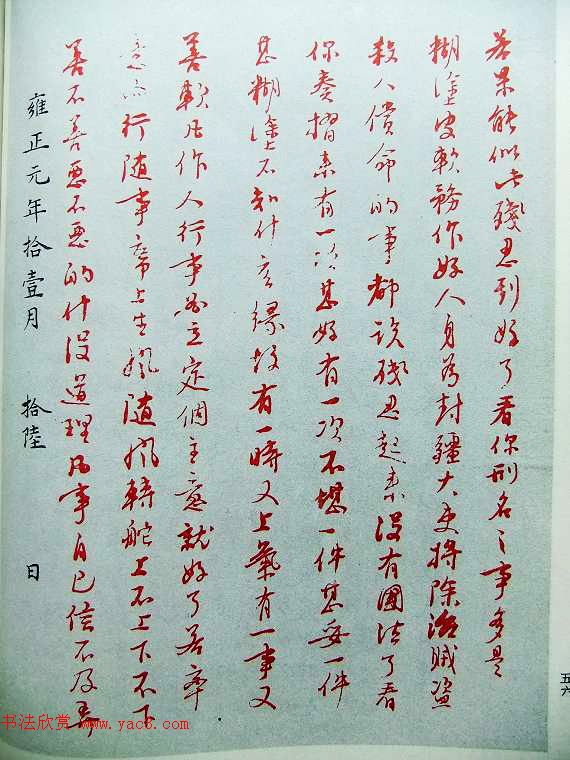 若果能似此殘忍到好了看你刑名之事多是
糊塗皮軟務作好人身為封疆大吏將除治賊盜
殺人償命的事都談殘忍起來沒有國法了看
你奏摺素有一次甚好有一次不堪一件甚妥一件
甚糊塗不知什麼緣故有一時又上氣有一事又
善軟凡作人行事必立定個主意就好了若率
意而行隨事帶上生風隨風轉舵上不上下不下
善不善惡不惡的什沒道理凡事自己信不及
雍正元年拾壹月 拾陸 日
五六
书法欣赏 www.yac8.com